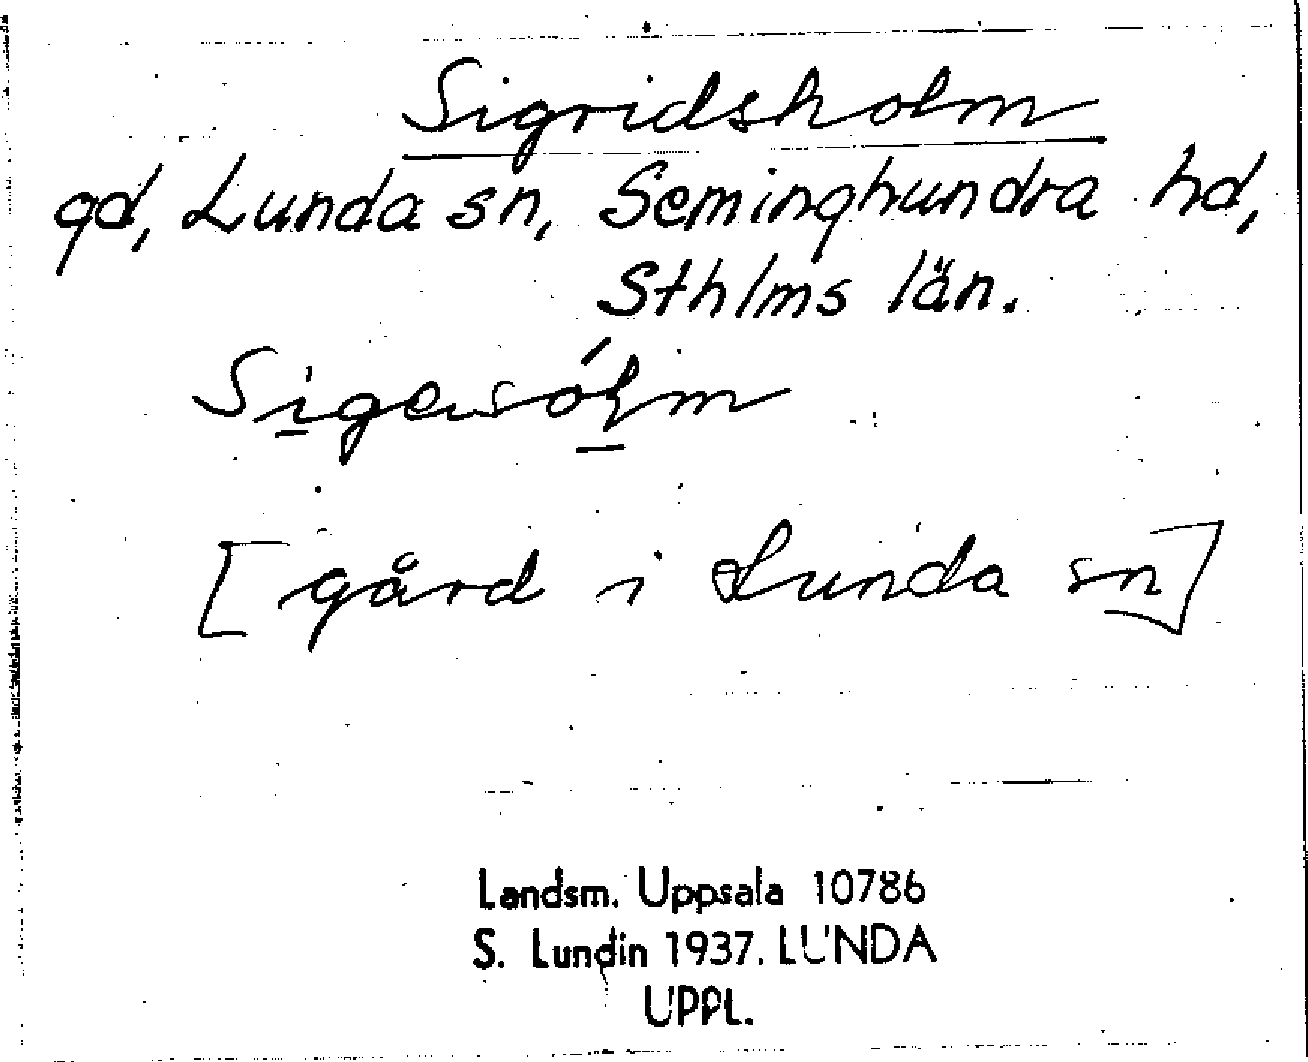 Sigridsholm
gd, Lunda sn, Seminghundra hd,
Sthlms län.
[gård i Lunda sn]
Landsm. Uppsala 10786
S. Lundin 1937. LUNDA
UPPL.